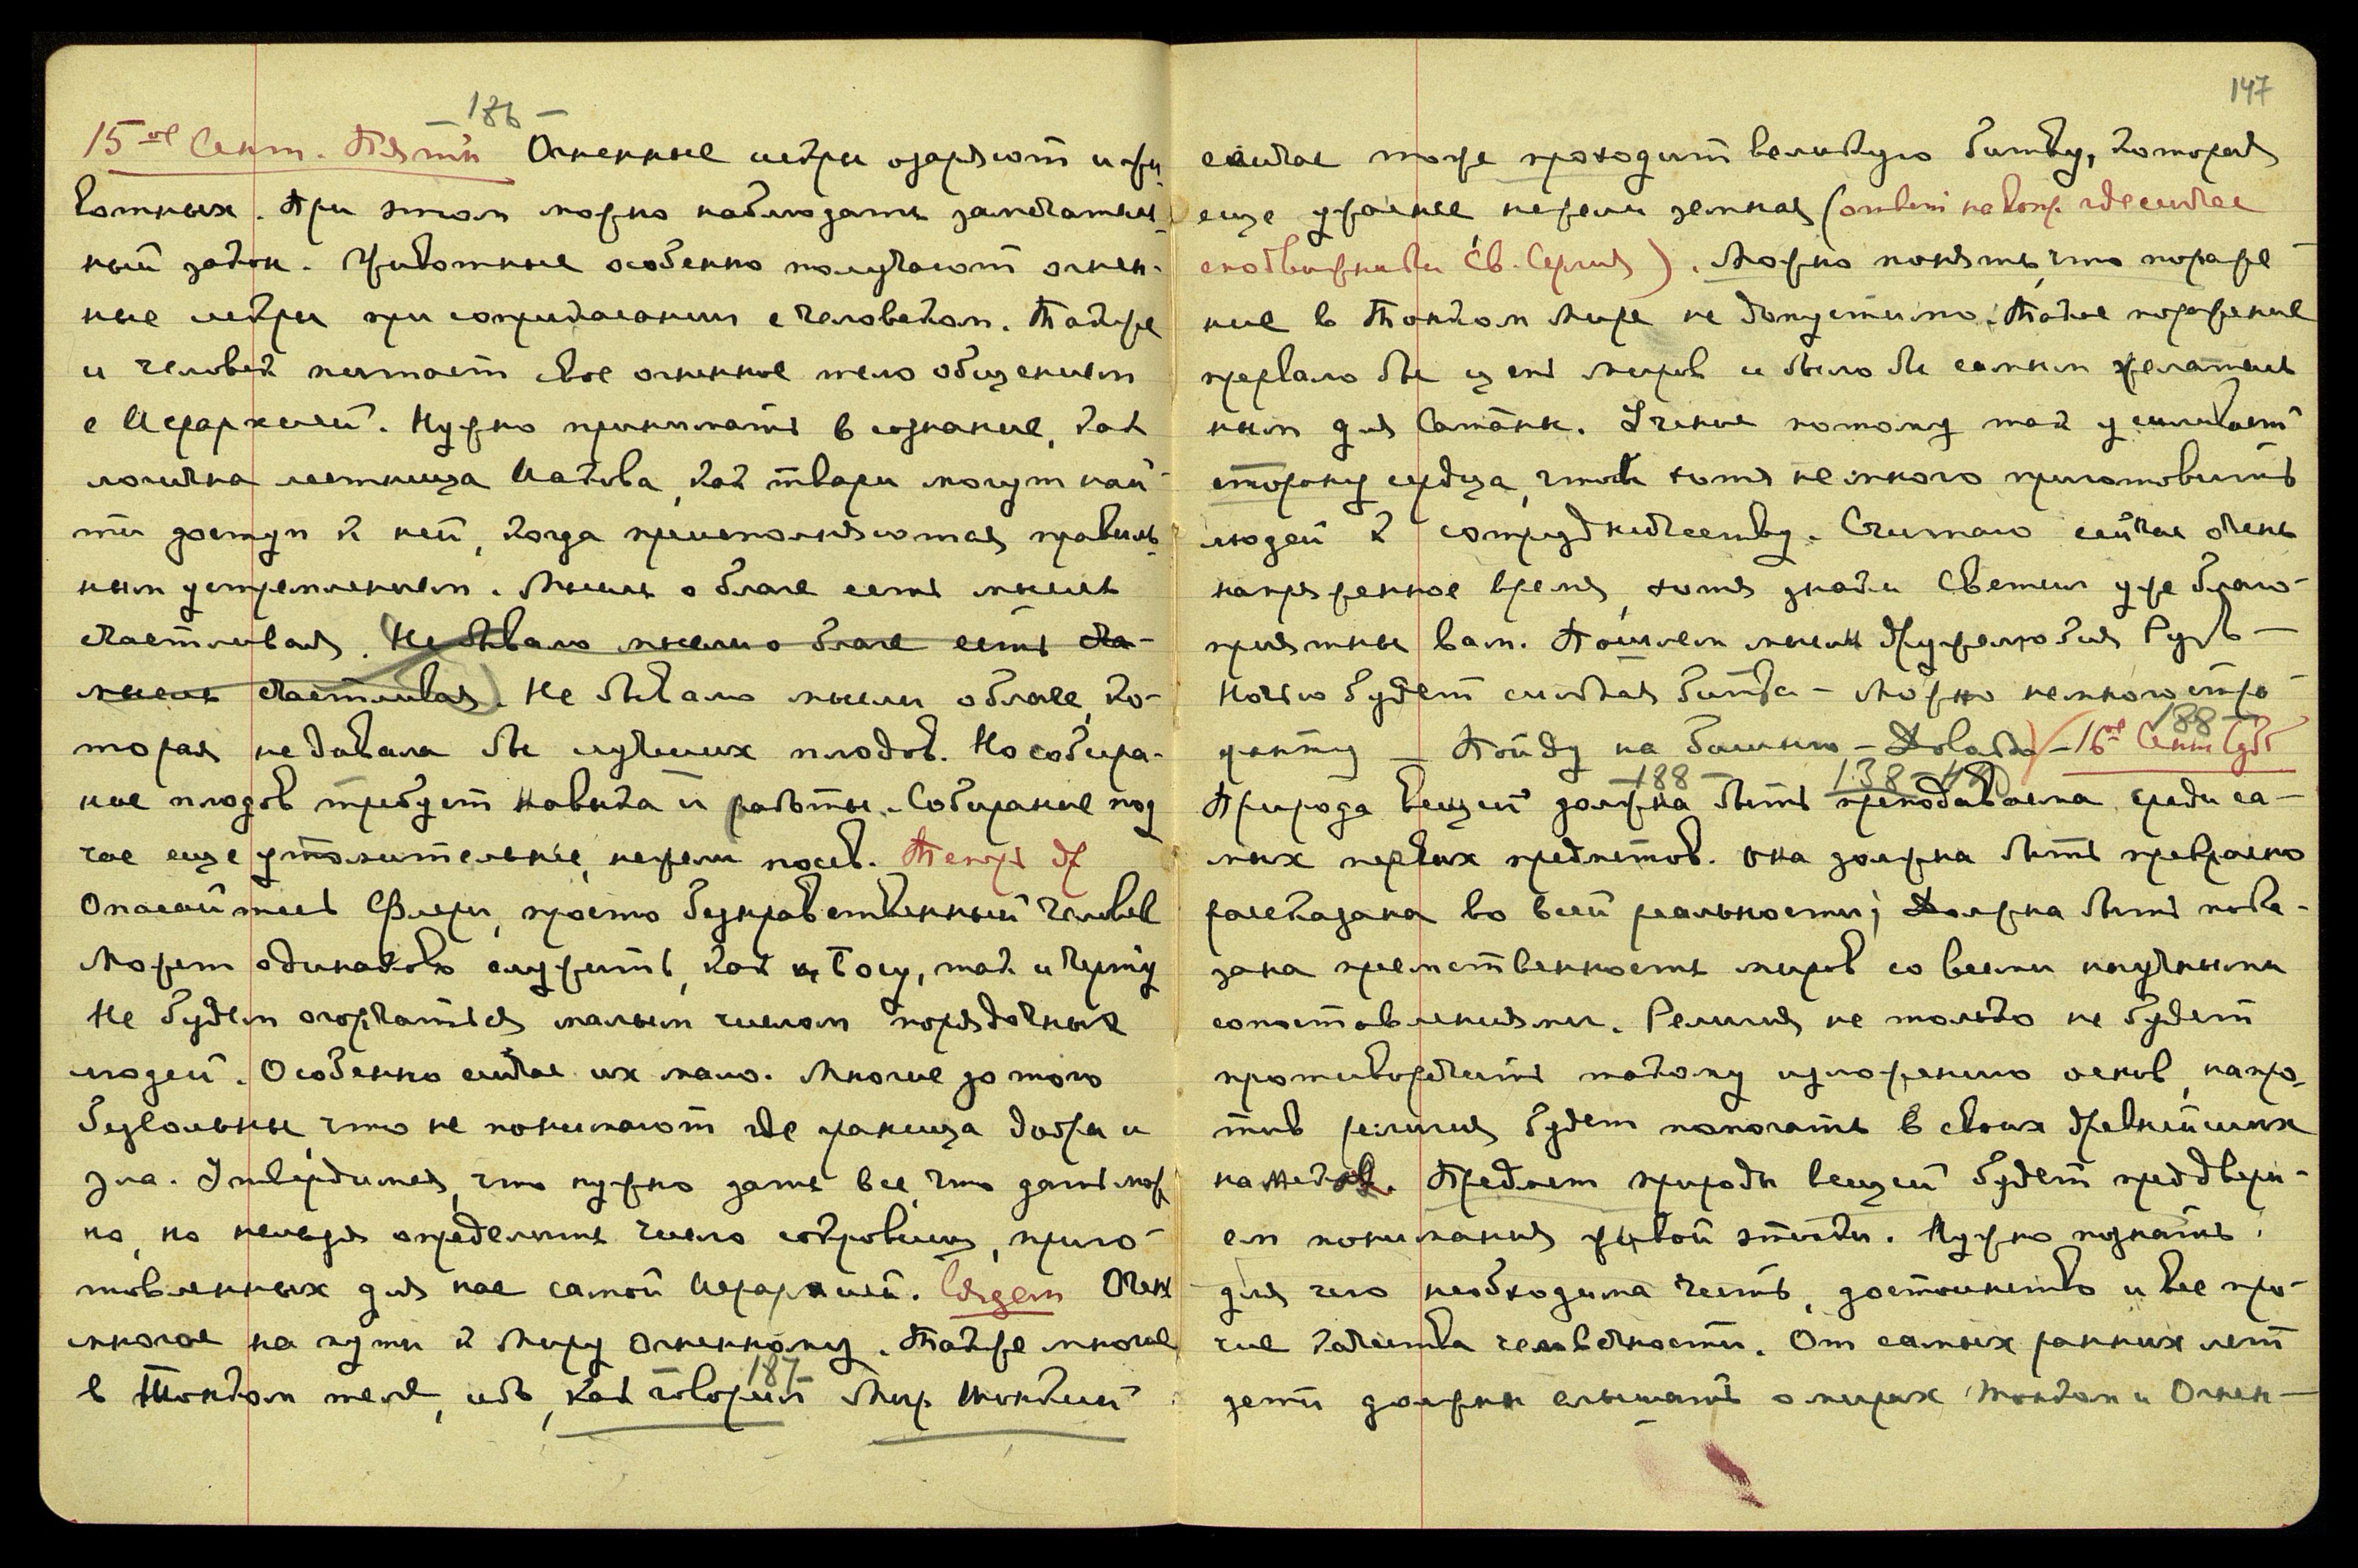 — 186 —
15ое Сент. Пятн Огненные искры озаряют и жи-
вотных. При этом можно наблюдать замечатель-
ный закон. Животные особенно получают огнен-
ные искры при соприкасании с человеком. Также
и человек питает свое огненное тело общением
с Иерархией. Нужно принимать в сознание, как
логична лестница Иакова, как твари могут най-
ти доступ к ней, когда преисполняются правиль-
ным устремлением. Мысль о благе есть мысль
счастливая. (Не бывало мысли о благе есть сча-
мысль счастливая). Не бывало мысли о благе, ко-
торая не давала бы лучших плодов. Но собира-
ние плодов требует навыка и работы. Собирание под-
час еще утомительнее, нежели посев. Теперь др
Опасайтесь Флеры, просто безнравственный человек
Может одинаково служить, как Богу, так и черту
Не будем огорчаться малым числом порядочных
людей. Особенно сейчас их мало. Многие до того
безвольны, что не понимают где граница добра и
зла. Утвердимся, что нужно дать все, что дать мож
но, но нельзя определить число сокровищ, приго-
товленных для нас самой Иерархией. Сядет Очень
многое на пути к Миру Огненному. Также многое
в Тонком теле, ибо, как говорит Мир Тонкий
187
147
сейчас тоже проходит великую битву, которая
еще ужаснее, нежели земная (ответ на вопр. где сейчас
сподвижники Св. Сергия). Можно понять, что пораже-
ние в Тонком Мире не допустимо. Такое поражение
прервало бы цепь миров и было бы самым желатель
ным для Сатаны. Учение потому так усиливает
сторону сердца, чтоб хотя немного приготовить
людей к сотрудничеству. Считаю сейчас очень
напряженное время, хотя знаки Светил уже благо-
приятны вам. Пошлем мысли дружелюбия Рузв —
Ночью будет сильная битва – Можно немного стро
— Пойду на башню – Довольно – 16ое Сент Субб
188 —
— 188 — 138-48)
Природа вещей должна быть преподаваема среди са-
мых первых предметов. Она должна быть прекрасно
рассказана во всей реальности; Должна быть пока-
зана преемственность миров со всеми научными
сопоставлениями. Религия не только не будет
противоречить такому изложению основ, напро-
тив религия будет помогать в своих древнейших
намеках. Предмет природы вещей будет преддвери-
ем понимания живой этики. Нужно познать,
для чего необходима честь, достоинство и все про-
чие качества человечности. От самых ранних лет
дети должны слышать о мирах Тонком и Огнен—